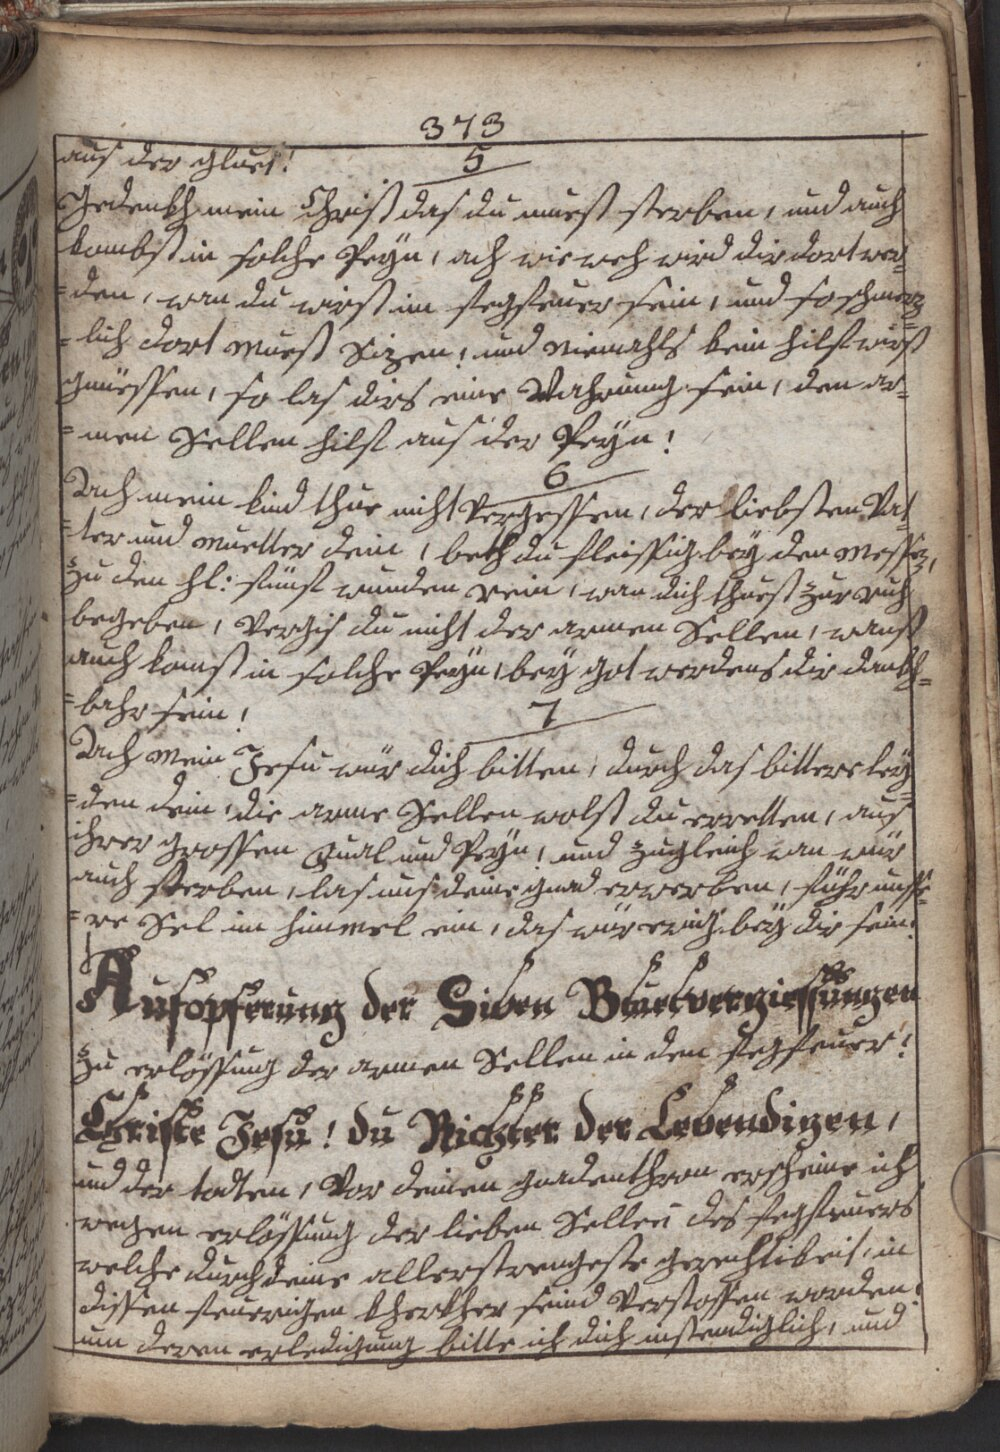 373
aus der gluet!
5
Gedenkh mein Christ das du muest sterben, und auch
kombst in solche Peÿn, ach wie weh wird dir dort wer=
=den, wan du wirst im fegfeuer sein, und so schmerz=
=lich dort muest Sizen! und niemahls kein hilf wirst
gnüessen, so las dirs eine Wahrnung sein, den ar=
=men Sellen hilf aus der Peÿn!
6
Ach mein kind thue nicht Vergessen, der liebsten Vat=
=ter und muetter dein, beth du fleissig beÿ den messen,
zu den hl: fünf wunden rein, wan dich thuest zur ruh
begeben, Vergis du nicht der armen Sellen, wanst
auch komst in solche Peÿn, beÿ got werdens dir dankh=
=bahr sein!
7
Ach mein Jesu wür dich bitten, durch das bittere leÿ=
=den dein, die arme Sellen wolst du erretten, aus
ihrer grossen Qual und Peÿn! und zugleich wan wür
auch sterben, las uns deine gnad erwerben, führ unse=
=re Sel im himmel ein, das wür ewig beÿ dir sein!
Aufopferung der Siben Bluetvergiessungen
zu erlössung der armen Sellen in dem fegfeuer!
Christe Jesu! du Richter der Lebendigen,
und der todten, Vor deinen gnadenthron erscheine ich
wegen erlössung der lieben Sellen des fegfeuers
welche durch deine allerstrengeste gerechtikeit, in
dissen feuerigen kherkher seind Verstossen worden!
um deren erledigung bitte ich dich instendiglich, und